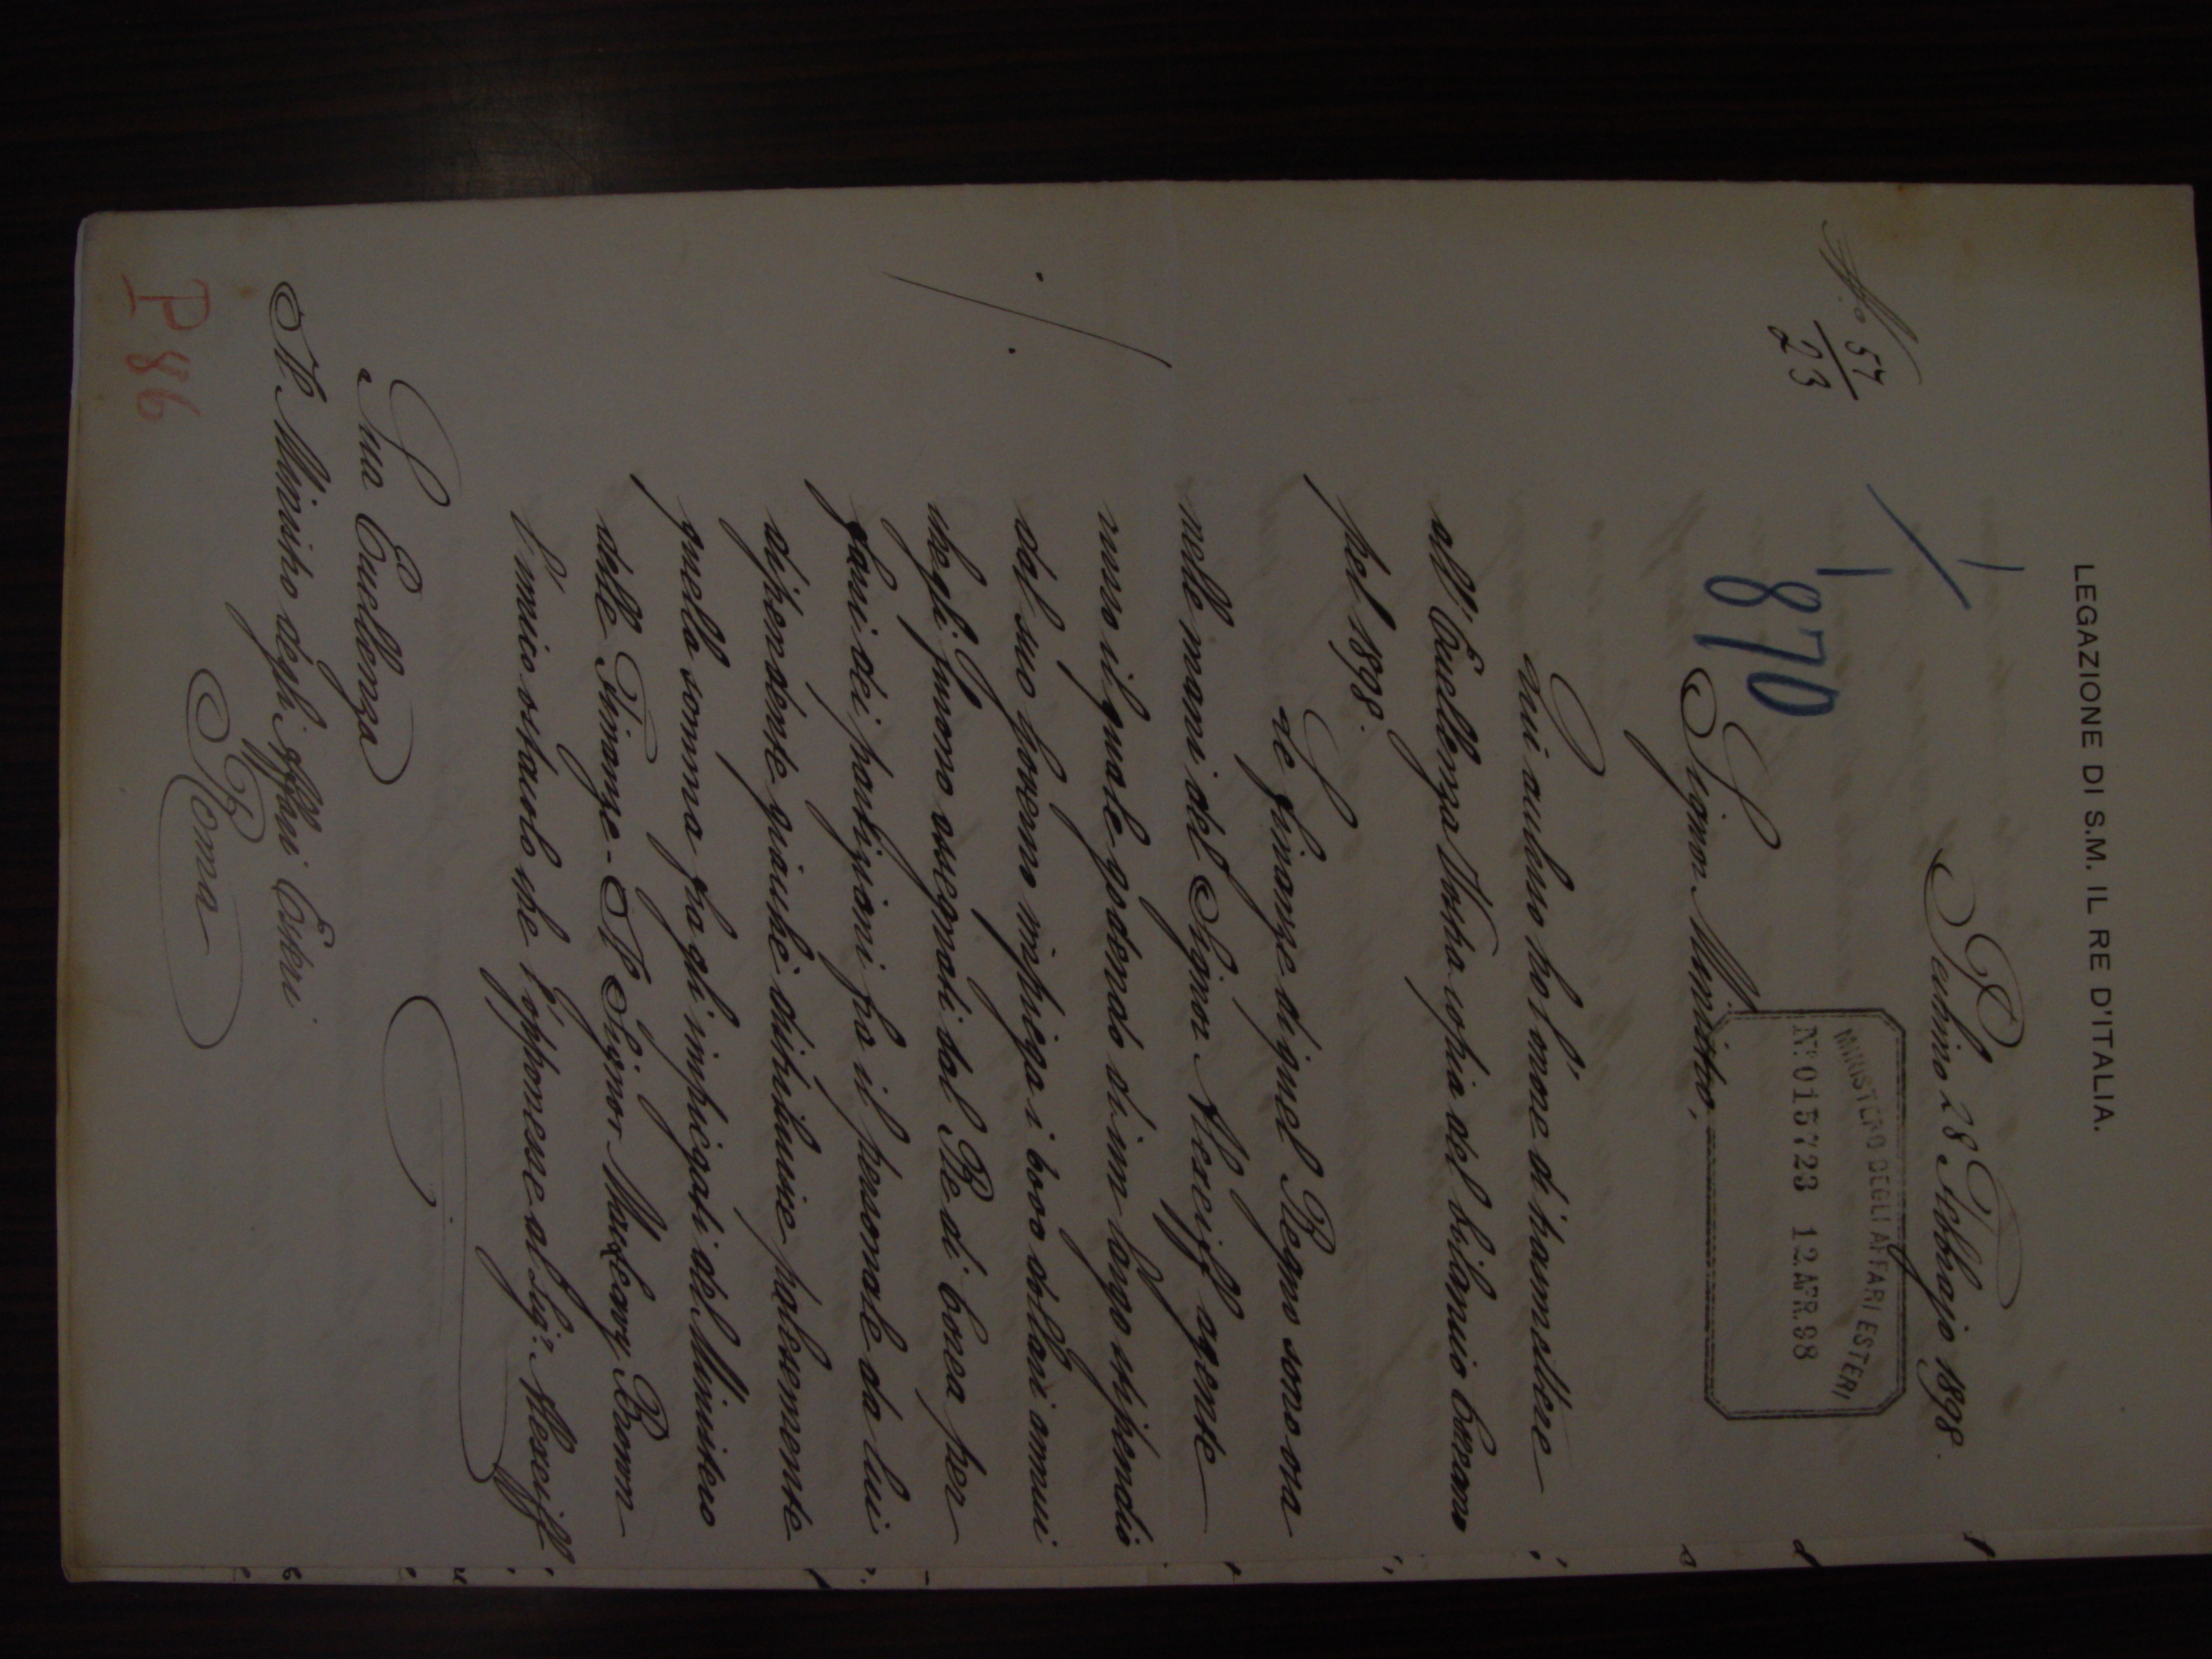 LEGAZIONE DI S.M. IL RE D'ITALIA.
Pechino 28 Febbrajo 1898.
No 57
23
870
MINISTERO DEGLI AFFARI ESTERI
No 015723 12.APR.98
Signor Ministro,
Qui accluso ho l'onore di trasmettere
all'Eccellenza Vostra copia del bilancio Coreano
pel 1898.
Le finanze di quel Regno sono ora
nelle mani del Signor Alexeiff agente
russo il quale godendo di un largo stipendio
dal suo governo impiega i 6000 dollari annui
che gli furono assegnati dal Re di Corea per
farsi dei partigiani fra il personale da lui
dipendente giacchè distribuisce palesemente
quella somma fra gli impiegati del Ministero
delle Finanze - Il Signor MacLeavy Brown
l'unico ostacolo che s'opponesse al Sigr. Alexeiff
Sua Eccellenza
Il Ministro degli Affari Esteri
Roma
P 86